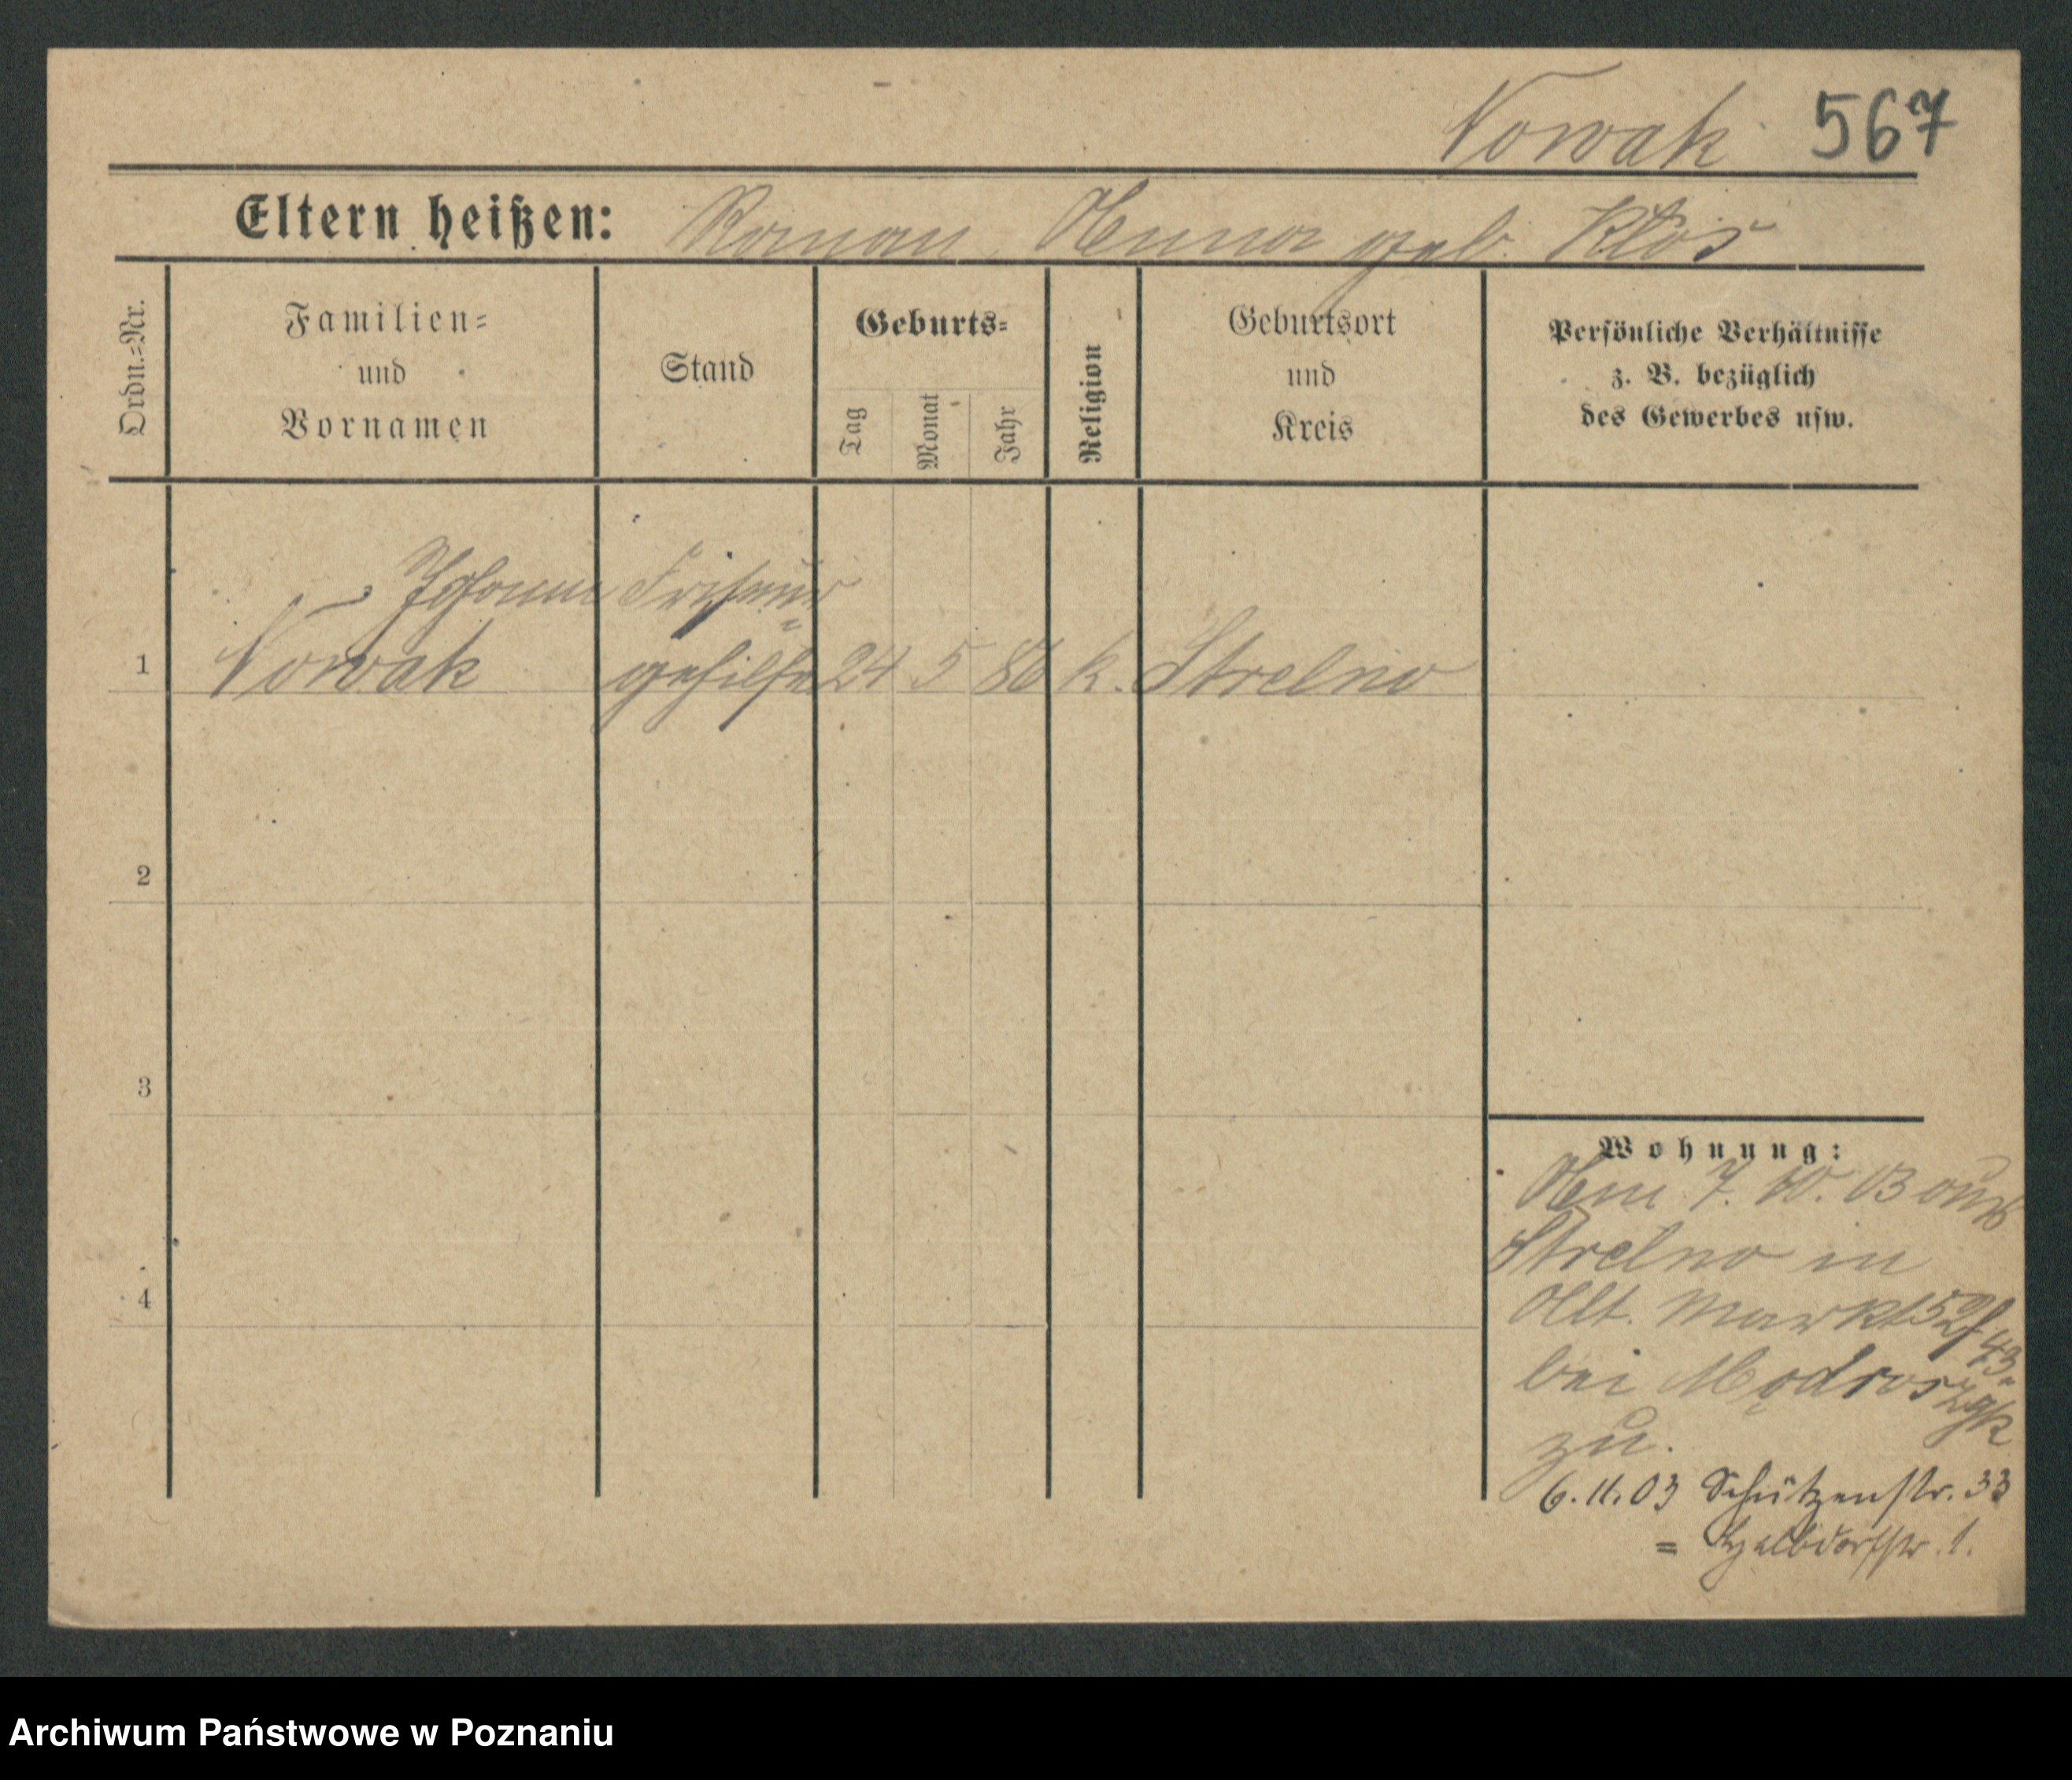 Nowak 567
Eltern heißen: Roman, Anna geb. Kłos
Ordn.=Nr.
Familien=
und
Vornamen
Stand
Geburts=
Tag
Monat
Jahr
Religion
Geburtsort
und
Kreis
Persönliche Verhältnisse
z. B. bezüglich
des Gewerbes usw.
Johann Friseur=
1 Nowak gehilfe 24 5 86 k. Strelno
2
3
4
Wohnung:
Am 7. 10. 03 aus
Strelno in
Alt. Markt 52/43
bei
zu.
6.11.03 Schützenstr. 33
= 1.
Archiwum Państwowe w Poznaniu